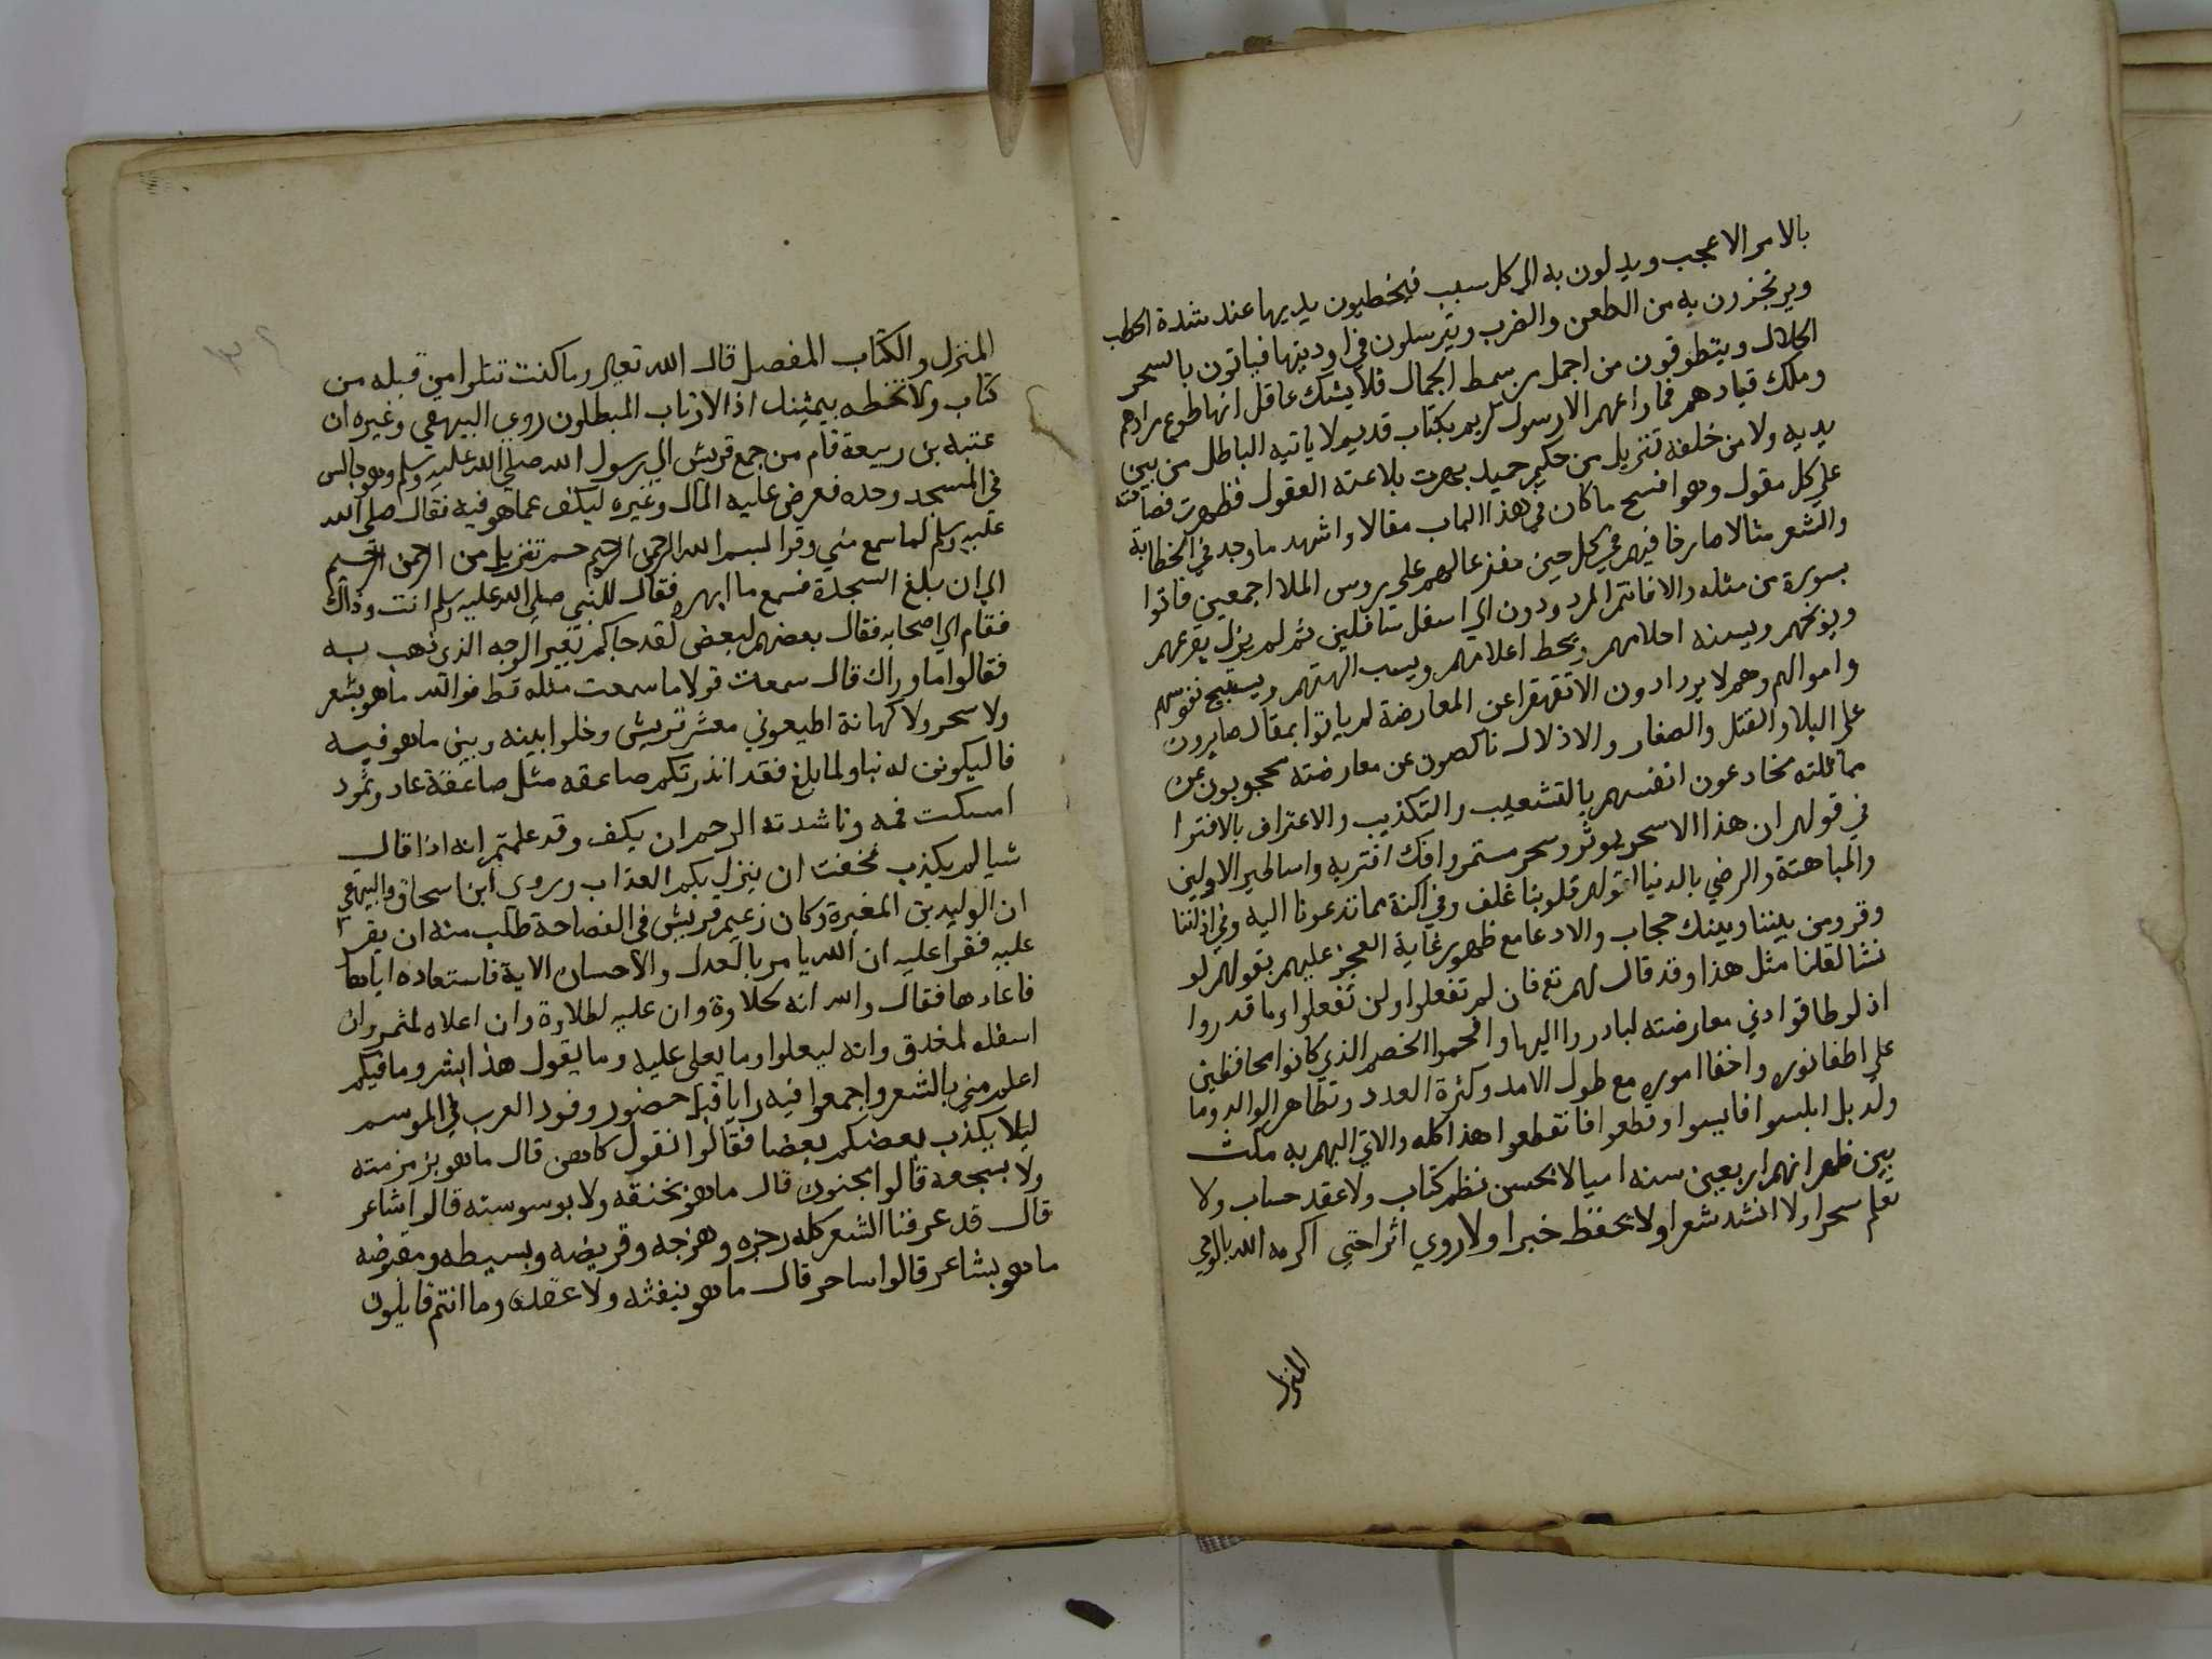 بالامر الاعجب ويدلون به الي كل سبب فيخطبون بديها عند شدة الخطب
ويرتجزون به من الطعن والضرب ويترسلون في اوديتها فياتون بالسحر
الحلال ويتطوقون من اجمل من سمط الجمال فلا يشك عاقل انها طوع مرادهم
وملك قيادهم فما راعهم الا رسول كريم بكتاب قديم لا ياتيه الباطل من بين
يديه ولا من خلفه تنزيل من حكيم حميد بهرت بلاغته العقول فظهرت فصاحته
علي كل مقول وهو افسح ما كان في هذا الباب مقالا واشهد ما وجد في الخطابة
والشعر مثالا صارخا فيهم في كل حين مفزعا لهم علي روس الملا اجمعين فاتوا
بسورة من مثله والا فانتم المردودون الي اسفل سافلين ثم لم يزل يقرعهم
ويوبخهم ويسفه احلامهم ويحط اعلامهم ويسب الهتهم ويستبيح نفوسهم
واموالهم وهم لا يردادون الا تقهقرا عن المعارضة لم ياتوا بمقال صابرون
علي البلا والقتل والصغار والاذلال ناكصون عن معارضته محجوبون عن
مماثلته يخادعون انفسهم بالتشعيب والتكذيب والاعتراف بالافترا
في قولهم ان هذا الا سحر يوثر وسحر مستمر وافك افتريه واساطير الاولين
والمباهتة والرضي بالدنيا لقولهم قلوبنا غلف وفي اكنة مما تدعونا اليه وفي اذاننا
وقر ومن بيننا وبينك حجاب والادعا مع ظهور غاية العجز عليهم بقولهم لو
نشا لقلنا مثل هذا وقد قال لهم تع فان لم تفعلوا ولن تفعلوا وما قدروا
اذ لو طاقوا ادني معارضته لبادروا اليها وافحموا الخصم الذي كانوا محافظين
علي اطفا نوره واخفا اموره مع طول الامد وكثرة العدد وتظاهر الوالد وما
ولد بل ابلسوا فايسوا وقطعوا فانقطعوا هذا كله والاتي اليهم به مكث
بين ظهرانيهم اربعين سنه اميا لا يحسن نظم كتاب ولا عقد حساب ولا
تعلم سحرا ولا انشد شعرا ولا يحفظ خبرا ولا روي اثرا حتي اكرمه الله بالوحي
المنزل
المنزل والكتاب المفصل قال الله تعالي وما كنت تتلوا من قبله من
كتاب ولا تخطه بيمينك اذا لارتاب المبطلون روي البيهقي وغيره ان
عتبه بن ربيعة قام من جمع قريش الي رسول الله صلي الله عليه وسلم وهو جالس
في المسجد وحده فعرض عليه المال وغيره ليكف عما هو فيه فقال صلي الله
عليه وسلم لما سمع مني وقرا بسم الله الرحمن الرحيم حم تنزيل من الرحمن الرحيم
الي ان بلغ السجدة فسمع ما ابهره فقال للنبي صلي الله عليه وسلم انت وذاك
فقام الي اصحابه فقال بعضهم لبعض لقد جاكم بغير الوجه الذي ذهب به
فقالوا ما وراك قال سمعت قولا ما سمعت مثله قط فوالله ما هو بشعر
ولا سحر ولا كهانة اطيعوني معشر قريش وخلوا بينه وبين ما هو فيه
فاليكونن له نبا ولما بلغ فقد انذرتكم صاعقه مثل صاعقة عاد وثمود
امسكت فمه وناشدته الرحم ان يكف وقد علمتم انه اذا قال
شيا لم يكذب فخفت ان ينزل بكم العذاب وروي ابن اسحاق والبيهقي
ان الوليد بن المغيرة وكان زعيم قريش في الفصاحة طلب منه ان يقرا
عليه فقرا عليه ان الله يامر بالعدل والاحسان الاية فاستعاده اياها
فاعادها فقال والله انه لحلاوة وان عليه لطلاوة وان اعلاه لمثمر وان
اسفله لمغدق وانه ليعلوا وما يعلي عليه وما يقول هذا بشر وما فيكم
اعلم مني بالشعر واجمعوا فيه رايا قبل حضور وفود العرب في الموسم
ليلا يكذب بعضكم بعضا فقالوا نقول كاهن قال ما هو بزمزمته
ولا بسجعه قالوا مجنون قال ما هو بخنقه ولا بوسوسته قالوا شاعر
قال قد عرفنا الشعر كله رجزه وهزجه وقريضه وبسيطه ومقبوضه
ما هو بشاعر قالوا ساحر قال ما هو بنفثه ولا عقده وما انتم قايلون